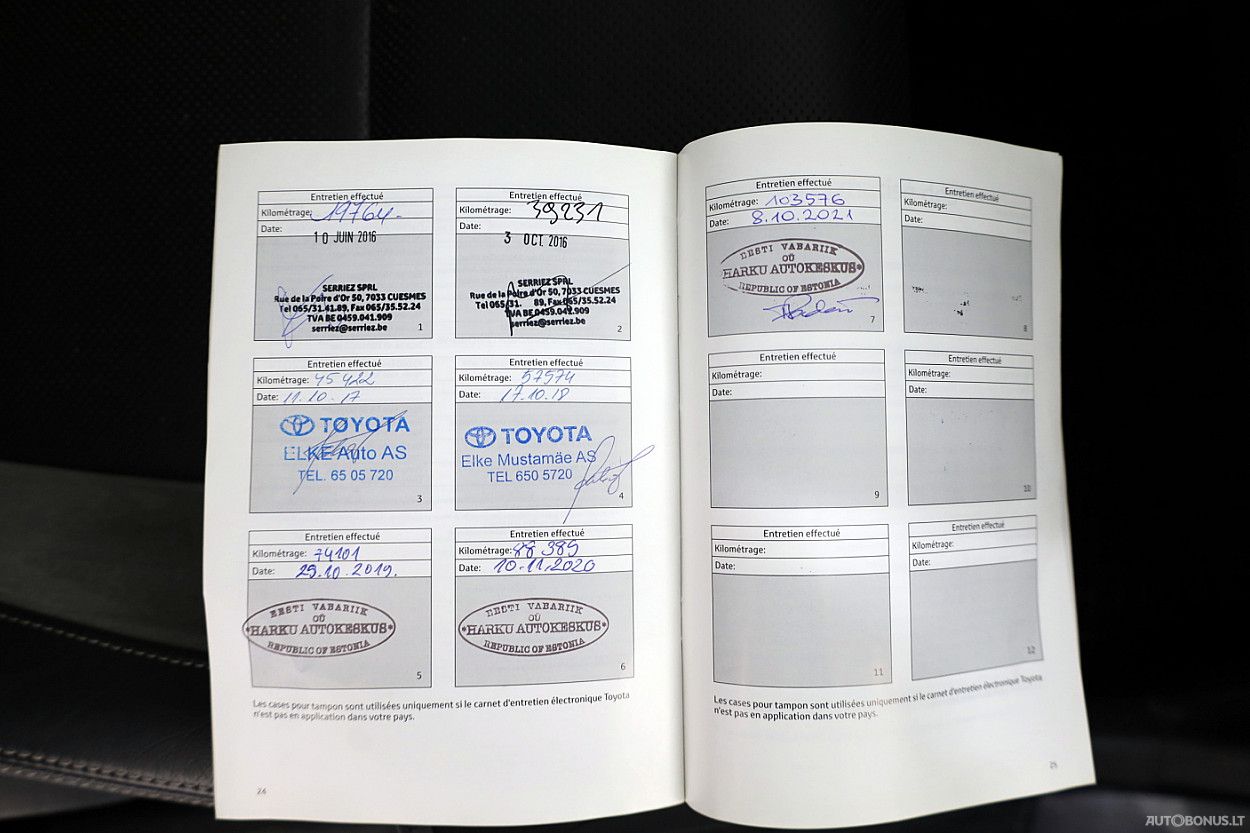 Entretien effectué
Kilométrage: 19764-
Date:
10 JUIN 2016
SERRIEZ SPRL
Rue de la Poire d'Or 50, 7033 CUESMES
Tel 065/31.41.89, Fax 065/35.52.24
TVA BE 0459.041.909
serriez@serriez.be
1
Entretien effectué
Kilométrage: 39231
Date:
3 OCT. 2016
SERRIEZ SPRL
Rue de la Poire d'Or 50, 7033 CUESMES
Tel 065/31. 89, Fax 065/35.52.24
TVA BE 0459.041.909
serriez@serriez.be
2
Entretien effectué
Kilométrage: 45422
Date: 11.10.17
TOYOTA
ELKE Auto AS
TEL. 65 05 720
3
Entretien effectué
Kilométrage: 57574
Date: 17.10.18
TOYOTA
Elke Mustamäe AS
TEL 650 5720
4
Entretien effectué
Kilométrage: 74101
Date: 29.10.2019.
EESTI VABARIIK
OÜ
*HARKU AUTOKESKUS*
REPUBLIC OF ESTONIA
5
Entretien effectué
Kilométrage: 88 389
Date: 10.11.2020
EESTI VABARIIK
OÜ
*HARKU AUTOKESKUS*
REPUBLIC OF ESTONIA
6
Les cases pour tampon sont utilisées uniquement si le carnet d'entretien électronique Toyota
n'est pas en application dans votre pays.
24
Entretien effectué
Kilométrage: 103576
Date: 8.10.2021
EESTI VABARIIK
OÜ
HARKU AUTOKESKUS*
REPUBLIC OF ESTONIA
7
Entretien effectué
Kilométrage:
Date:
8
Entretien effectué
Kilométrage:
Date:
9
Entretien effectué
Kilométrage:
Date:
10
Entretien effectué
Kilométrage:
Date:
11
Entretien effectué
Kilométrage:
Date:
12
Les cases pour tampon sont utilisées uniquement si le carnet d'entretien électronique Toyota
n'est pas en application dans votre pays.
25
AUTOBONUS.LT